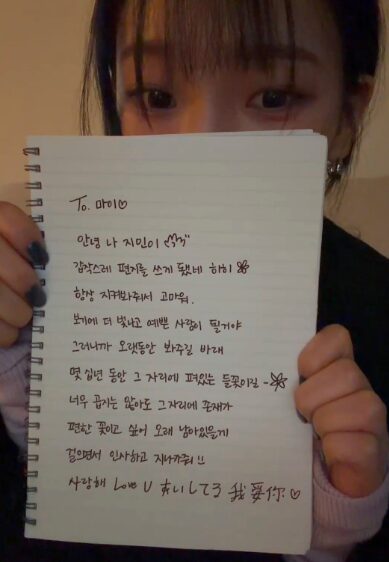 To. 마이♡
안녕 나 지민이
갑작스레 편지를 쓰게 됐네 히히
항상 지켜봐줘서 고마워.
보기에 더 빛나고 예쁜 사람이 될거야
그러니까 오랫동안 봐주길 바래
몇 십년 동안 그 자리에 펴있는 들꽃이길 -
너무 곱지는 않아도 그 자리에 존재가
편한 꽃이고 싶어 오래 남아있을게
걸으면서 인사하고 지나가줘!!
사랑해 Love U あいしてる 我爱你.♡